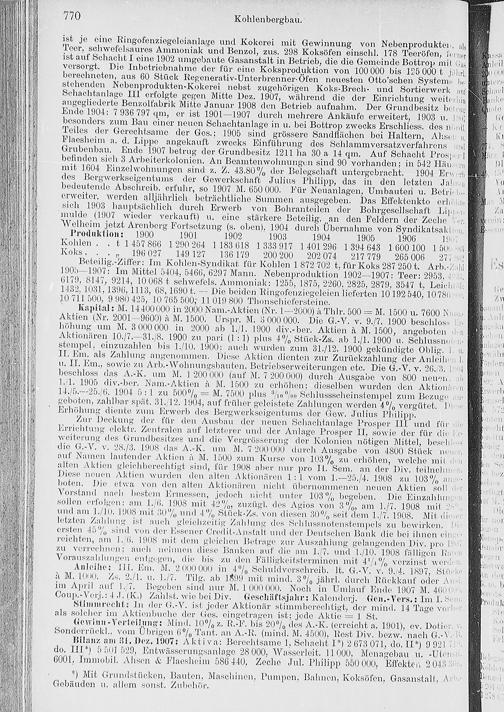 770
Kohlenbergbau.
ist je eine Ringofenziegeleianlage und Kokerei mit Gewinnung von Nebenprodukten
Teer, schwefelsaures Ammoniak und Benzol, zus. 298 Koksöfen einschl. 178 Teeröfen,
ist auf Schacht I eine 1902 umgebaute Gasanstalt in Betrieb, die die Gemeinde Bottrop mit
versorgt. Die Inbetriebnahme der für eine Koksproduktion von 100 000 bis 125 000 t
berechneten, aus 60 Stück Regenerativ-Unterbrenner-Öfen neuesten Otto'schen Systems
stehenden Nebenprodukten-Kokerei nebst zugehörigen Koks-Brech- und Sortierwerk
Schachtanlage III erfolgte gegen Mitte Dez. 1907, während die der Einrichtung
angegliederte Benzolfabrik Mitte Januar 1908 den Betrieb aufnahm. Der Grundbesitz
Ende 1904: 7 936 797 qm, er ist 1901—1907 durch mehrere Ankäufe erweitert, 1903 u.
besonders zum Bau einer neuen Schachtanlage in u. bei Bottrop zwecks Erschliess. des
Teiles der Gerechtsame der Ges.; 1905 sind grössere Sandflächen bei Haltern,
Flaesheim a. d. Lippe angekauft zwecks Einführung des Schlammversatzverfahrens
Grubenbau. Ende 1907 betrug der Grundbesitz 1211 ha 30 a 14 qm. Auf Schacht
befinden sich 3 Arbeiterkolonien. An Beamtenwohnungen sind 90 vorhanden; in 542
mit 1604 Einzelwohnungen sind z. Z. 43.80% der Belegschaft untergebracht. 1904
des Bergwerkseigentums der Gewerkschaft Julius Philipp, das in den letzten
bedeutende Abschreib. erfuhr, so 1907 M. 650 000. Für Neuanlagen, Umbauten u.
erweiter. werden alljährlich beträchtliche Summen ausgegeben. Das Effektenkto
sich 1903 hauptsächlich durch Erwerb von Bohranteilen der Bohrgesellschaft
mulde (1907 wieder verkauft) u. eine stärkere Beteilig. an den Feldern der Zeche
Welheim jetzt Arenberg Fortsetzung (s. oben). 1904 durch Übernahme von Syndikatsakt.
Produktion: 1900 1901 1902 1903 1904 1905 1906
Kohlen . . t 1 457 866 1 290 264 1 183 618 1 333 917 1 401 296 1 394 643 1 600 100
Koks . . „ 196 027 149 127 136 179 200 200 202 074 217 779 265 006
Beteilig.-Ziffer: Im Kohlen-Syndikat für Kohlen 1 872 702 t, für Koks 287 250 t.
1905—1907: Im Mittel 5404, 5466, 6297 Mann. Nebenproduktion 1902—1907: Teer: 2953,
6179, 8147, 9214, 10 068 t schwefels. Ammoniak: 1255, 1875, 2260, 2825, 2879, 3547 t.
1432, 1031, 1396, 1113, 68, 1690 t. — Die beiden Ringofenziegeleien lieferten 10 192 540,
10 711 500, 9 980 425, 10 765 500; 11 019 800 Thonschiefersteine.
Kapital: M. 14 400 000 in 2000 Nam.-Aktien (Nr. 1—2000) à Thlr. 500 = M. 1500 u. 7600
Aktien (Nr. 2001—9600) à M. 1500. Urspr. M. 3 000 000. Die G.-V. v. 9./7. 1900 beschloss
höhung um M. 3 000 000 in 2000 ab 1./1. 1900 div.-ber. Aktien à M. 1500, angeboten
Aktionären 10./7.—31./8. 1900 zu pari (1 : 1) plus 4% Stück-Zs. ab 1./1. 1900 u. Schlussnoten-
stempel, einzuzahlen bis 1./10. 1900; auch wurden zum 31./12. 1900 gekündigte Oblig.
II. Em. als Zahlung angenommen. Diese Aktien dienten zur Zurückzahlung der Anleihe
u. II. Em., sowie zu Arb.-Wohnungsbauten, Betriebserweiterungen etc. Die G.-V. v. 26./3.
beschloss das A.-K. um M. 1 200 000 (auf M. 7 200 000) durch Ausgabe von 800 neuen,
1./1. 1905 div.-ber. Nam.-Aktien à M. 1500 zu erhöhen; dieselben wurden den Aktionären
14./5.—25./6. 1904 5 : 1 zu 500% = M. 7500 plus Schlussscheinstempel zum Bezuge
geboten, zahlbar spät. 31./12. 1904, auf früher geleistete Zahlungen werden 4% vergütet.
Erhöhung diente zum Erwerb des Bergwerkseigentums der Gew. Julius Philipp.
Zur Deckung der für den Ausbau der neuen Schachtanlage Prosper III und für
Errichtung elektr. Zentralen auf letzterer und der Anlage Prosper II, sowie der für die
weiterung des Grundbesitzes und die Vergrösserung der Kolonien nötigen Mittel, beschloss
die G.-V. v. 28./3. 1908 das A.-K. um M. 7 200 000 durch Ausgabe von 4800 Stück
auf Namen lautender Aktien à M. 1500 zum Kurse von 103% zu erhöhen, welche mit
alten Aktien gleichberechtigt sind, für 1908 aber nur pro II. Sem. an der Div. teilnehmen.
Diese neuen Aktien wurden den alten Aktionären 1 : 1 vom 1.—25./4. 1908 zu 103%
boten. Die etwa von den alten Aktionären nicht übernommenen neuen Aktien soll
Vorstand nach bestem Ermessen, jedoch nicht unter 103% begeben. Die Einzahlung
sollen erfolgen: am 1./6. 1908 mit 42%, zuzügl. des Agios von 3%, am 1./7. 1908 mit
und am 1./10. 1908 mit 30% und 4% Stück-Zs. von diesen 30% seit dem 1./7. 1908. Mit der
letzten Zahlung ist auch gleichzeitig Zahlung des Schlussnotenstempels zu bewirken.
ersten 45% sind von der Essener Credit-Anstalt und der Deutschen Bank die bei ihnen
reichten, am 1./6. 1908 mit dem gleichen Betrage zur Auszahlung gelangenden Div. pro
zu verrechnen; auch nehmen diese Banken auf die am 1./7. und 1./10. 1908 fälligen
Vorauszahlungen entgegen, die bis zu den Fälligkeitsterminen mit verzinst werden.
Anleihe: III. Em. M. 2 000 000 in 4% Schuldverschreib. lt. G.-V. v. 9./4. 1897, Stücke
à M. 1000. Zs. 2./1. u. 1./7. Tilg. ab 1899 mit mind. 3% jährl. durch Rückkauf oder
im April auf 1./7. Begeben sind nur M. 1 000 000. Noch in Umlauf Ende 1907 M. 460
Coup.-Verj.: 4 J. (K.) Zahlst. wie bei Div. Geschäftsjahr: Kalenderj. Gen.-Vers.: Im I. Sem.
Stimmrecht: In der G.-V. ist jeder Aktionär stimmberechtigt, der mind. 14 Tage vorher
als solcher im Aktienbuche der Ges. eingetragen ist; jede Aktie = 1 St.
Gewinn-Verteilung: Mind. 10% z. R.-F. bis 20% des A.-K. (erreicht a. 1901), ev. Dotier. v.
Sonderrückl., vom Übrigen 6% Tant. an A.-R. (mind. M. 4500), Rest Div. bezw. nach G.-V.
Bilanz am 31. Dez. 1907: Aktiva: Berechtsame 1, Schacht I*) 2 673 071, do. II*) 9 921
do. III*) 5 501 529, Entwässerungsanlage 28 000, Wasserleit. 11 000, Menagebau u. -Utensil.
6001, Immobil. Ahsen & Flaesheim 586 440, Zeche Jul. Philipp 550 000, Effekten 2 043
*) Mit Grundstücken, Bauten, Maschinen, Pumpen, Bahnen, Koksöfen, Gasanstalt,
Gebäuden u. allem sonst. Zubehör.